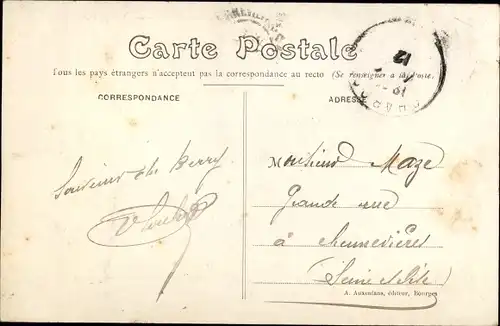 Carte Postale
Tous les pays étrangers n'acceptent pas la correspondance au recto (Se renseigner à la Poste.
CORRESPONDANCE
ADRESSE
Souvenir du Berry
Monsieur Maze
Grande rue
à Chennevières
(Seine et Oise
A. Auxenfans, éditeur, Bourges